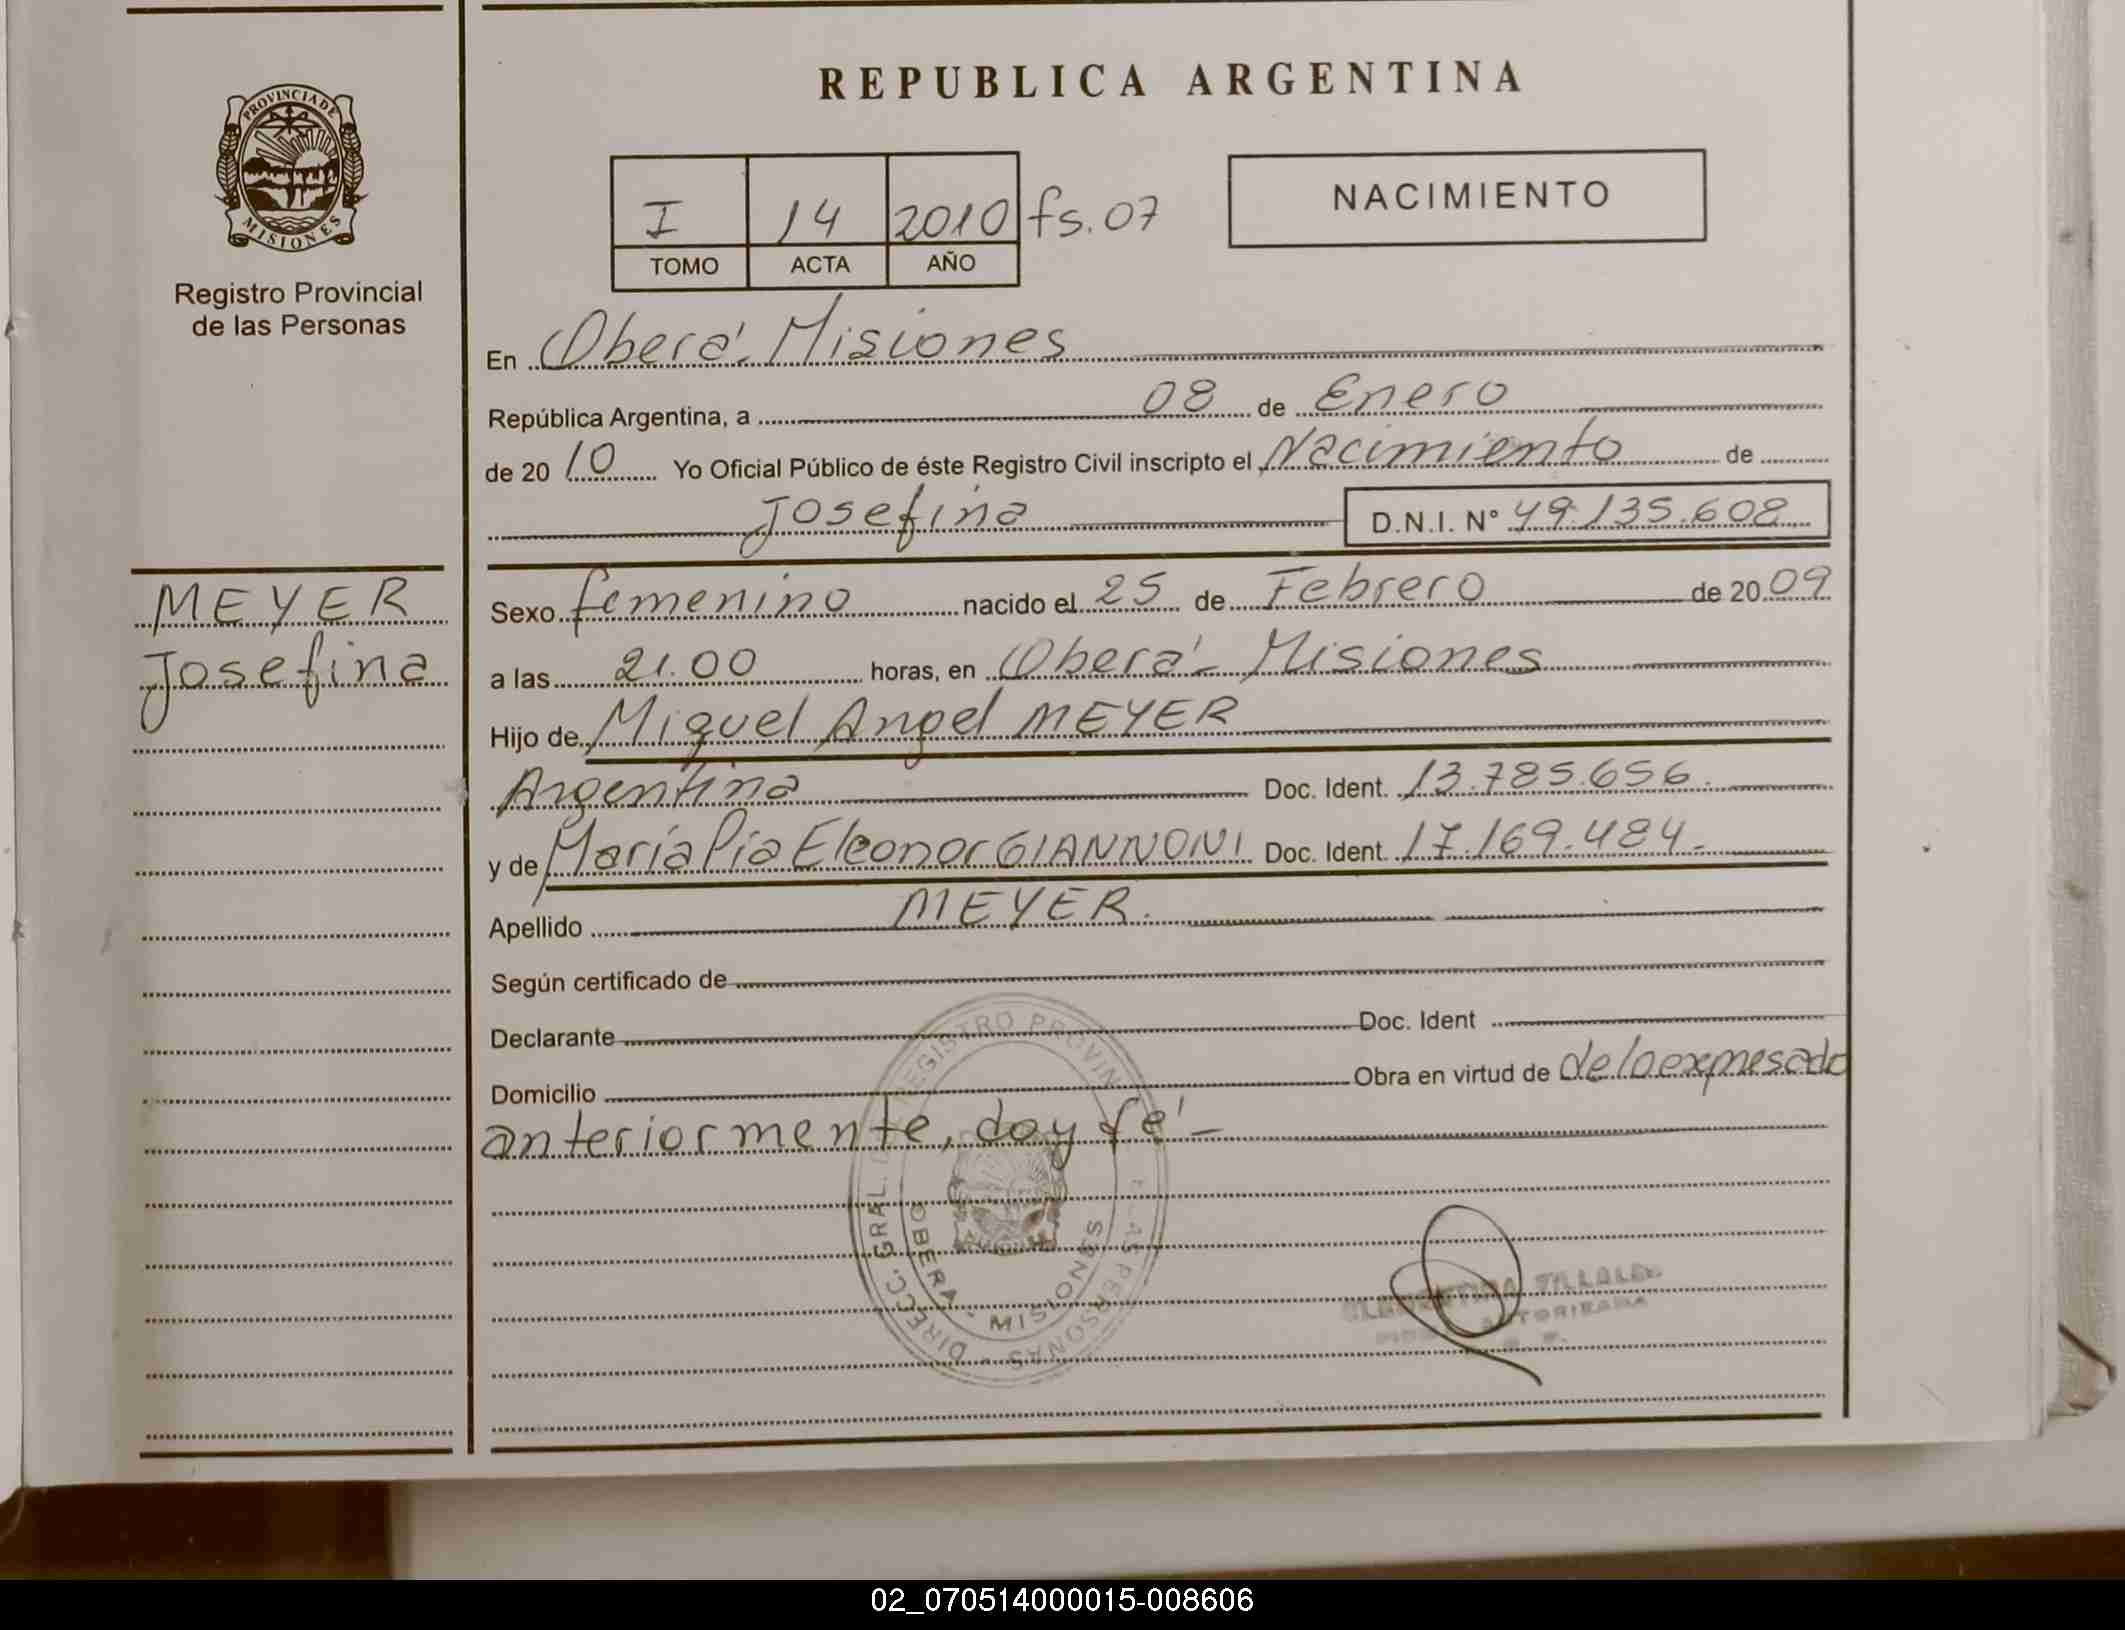 REPUBLICA ARGENTINA
PROVINCIA DE
MISIONES
Registro Provincial
de las Personas
I 14 2010 fs. 07
TOMO ACTA AÑO
NACIMIENTO
En Oberá - Misiones
República Argentina, a 08 de Enero
de 20 10 Yo Oficial Público de éste Registro Civil inscripto el Nacimiento de
Josefina D.N.I. N° 49.135.608
MEYER
Josefina
Sexo femenino nacido el 25 de Febrero de 20 09
a las 21.00 horas, en Oberá - Misiones
Hijo de Miguel Angel MEYER
Argentina Doc. Ident. 13.785.656.
y de María Pía Eleonor GIANNONI Doc. Ident. 17.169.484.-
Apellido MEYER.
Según certificado de
Declarante Doc. Ident
Domicilio Obra en virtud de de lo expresado
anteriormente, doy fé -
DIRECC. GRAL. REGISTRO PROVIN LAS PERSONAS
OBERA - MISIONES
02_070514000015-008606